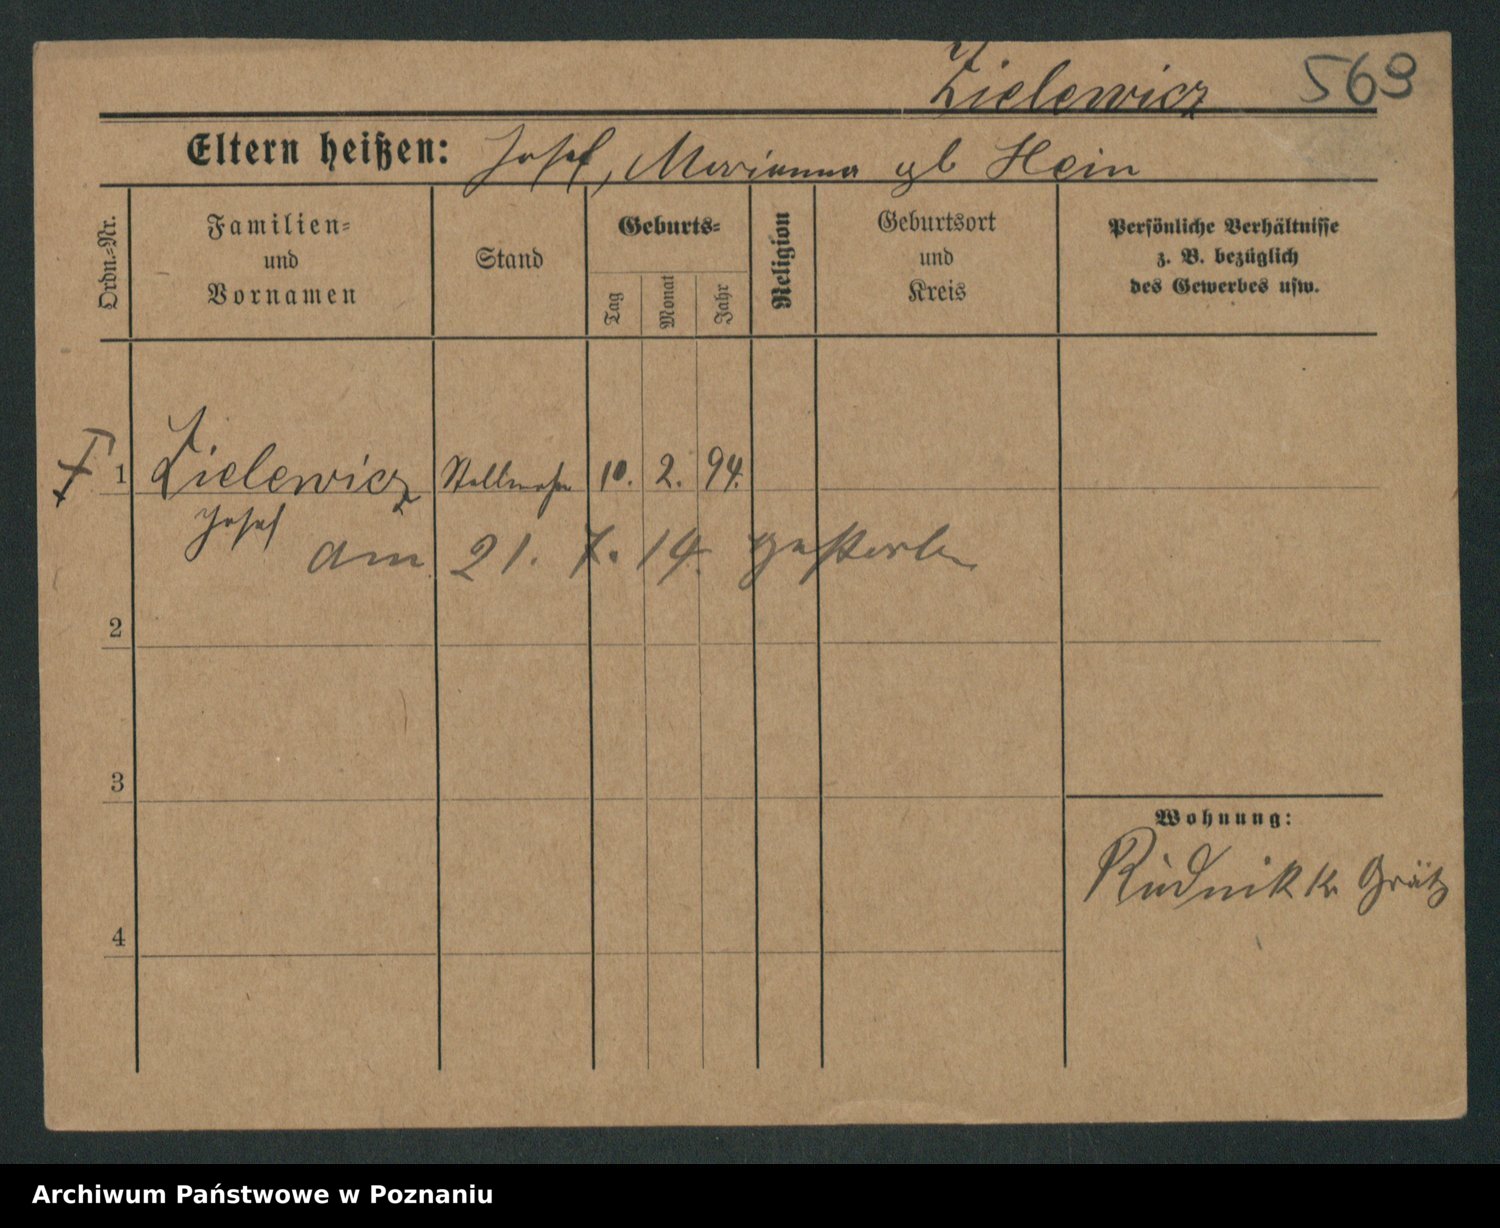 Zielewicz 569
Eltern heißen: Josef, Marianna gb Hein
Ordn.-Nr.
Familien-
und
Vornamen
Stand
Geburts-
Tag
Monat
Jahr
Religion
Geburtsort
und
Kreis
Persönliche Verhältnisse
z. B. bezüglich
des Gewerbes usw.
1 Zielewicz 10. 2. 94.
Josef
am 21. 7. 14. gestorben
2
3
Wohnung:
Rudnik Kr. Grätz
4
Archiwum Państwowe w Poznaniu